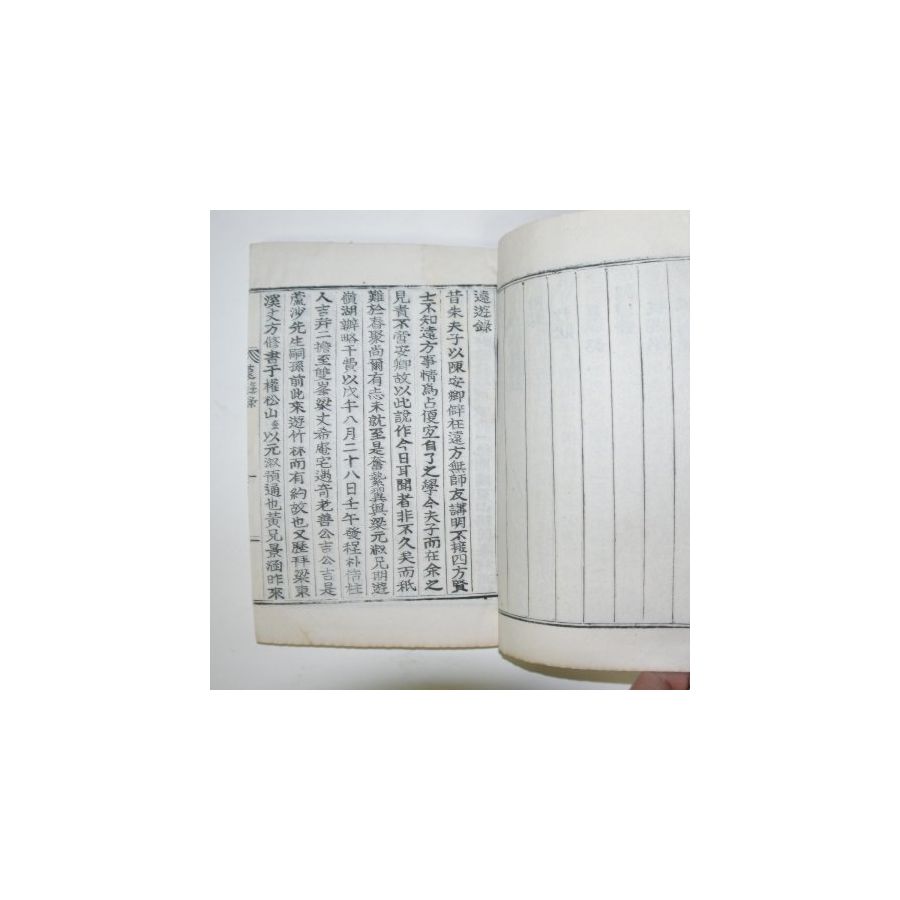 遠遊錄
昔朱夫子以陳安卿僻在遠方無師友講明不接四方賢
士不知遠方事情爲占便宜自了之學今夫子而在余之
見責不啻安卿故以此說作今日耳聞者非不久矣而秖
難於舂聚尚爾有志未就至是奮紮翼與梁元淑兄期遊
嶺湖辦略干費以戊午八月二十八日壬午發程朴
人吉弁二擔至雙峯梁丈希庵宅遇奇老善公吉公吉是
蘆沙先生嗣孫前此來遊竹林而有約故也又歷拜梁東
溪丈方修書于權松山至以元淑預通也黃兄景涵昨來